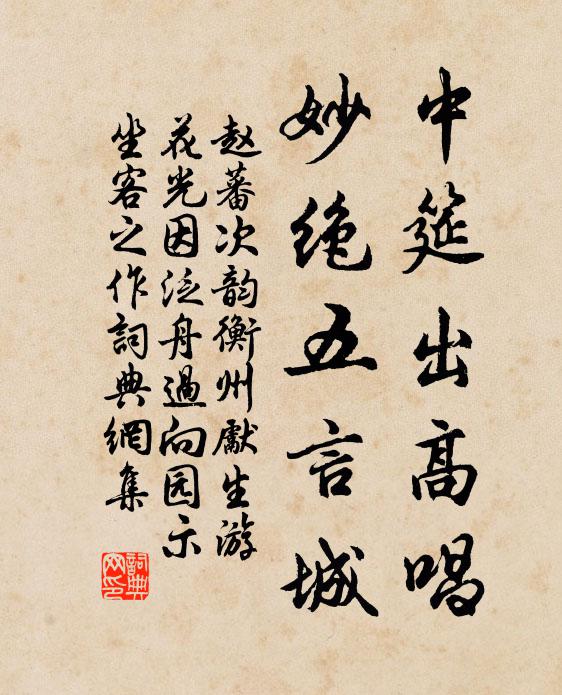 中筵出高唱
妙绝五言城
赵蕃次韵衡州獻生游
花光因泛舟過向园示
坐客之作詞典網集
詞典
网印